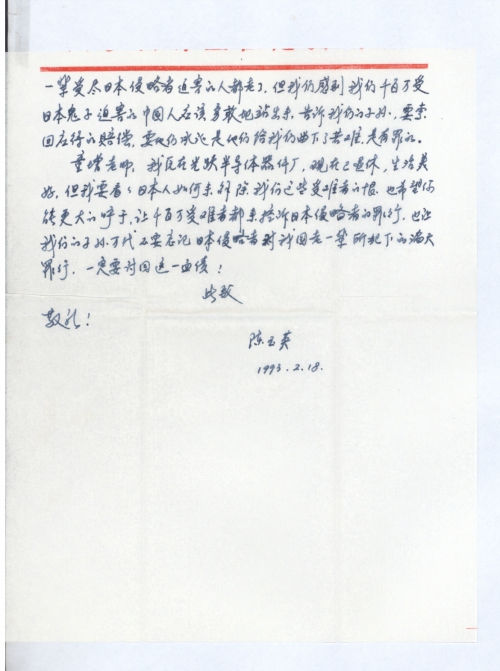 一辈受尽日本侵略者迫害的人都老了，但我们感到我们千百万受
日本鬼子迫害的中国人应该勇敢地站出来，告诉我们的子孙，要索
回应得的赔偿，要他们承认是他们给我们留下了苦难，是有罪的。
童增老师，我原在光跃半导体器件厂，现在已退休，生活美
好，但我要看看日本人如何来解除我们这些受难者的恨，也希望你
能更大的呼于，让千百万受难者都来控诉日本侵略者的罪行，也让
我们的子孙万代不要忘记日本侵略者对我国老一辈所犯下的滔天
罪行，一定要讨回这一血债！
此致
敬礼！
陈玉英
1993.2.18.